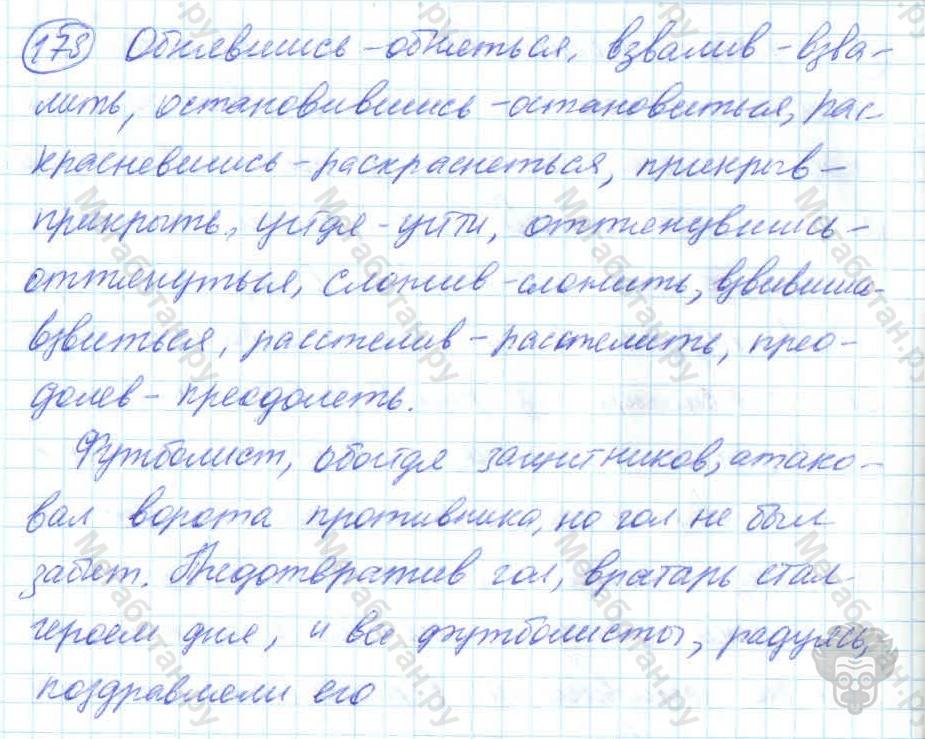 178 Обнявшись - обняться, взвалив - взва-
лить, остановившись - остановиться, рас-
красневшись - раскраснеться, прикрыв -
прикрыть, уйдя - уйти, оттянувшись -
оттянуться, сложив - сложить, взвившись-
взвиться, расстелив - расстелить, прео-
долев - преодолеть.
Футболист, обойдя защитников, атако-
вал ворота противника, но гол не был
забит. Предотвратив гол, вратарь стал
героем дня, и все футболисты, радуясь,
поздравляли его
Мабботан.ру